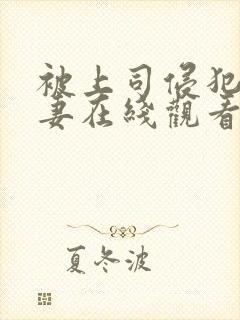 被上司侵犯
妻在綫觀看
夏冬波